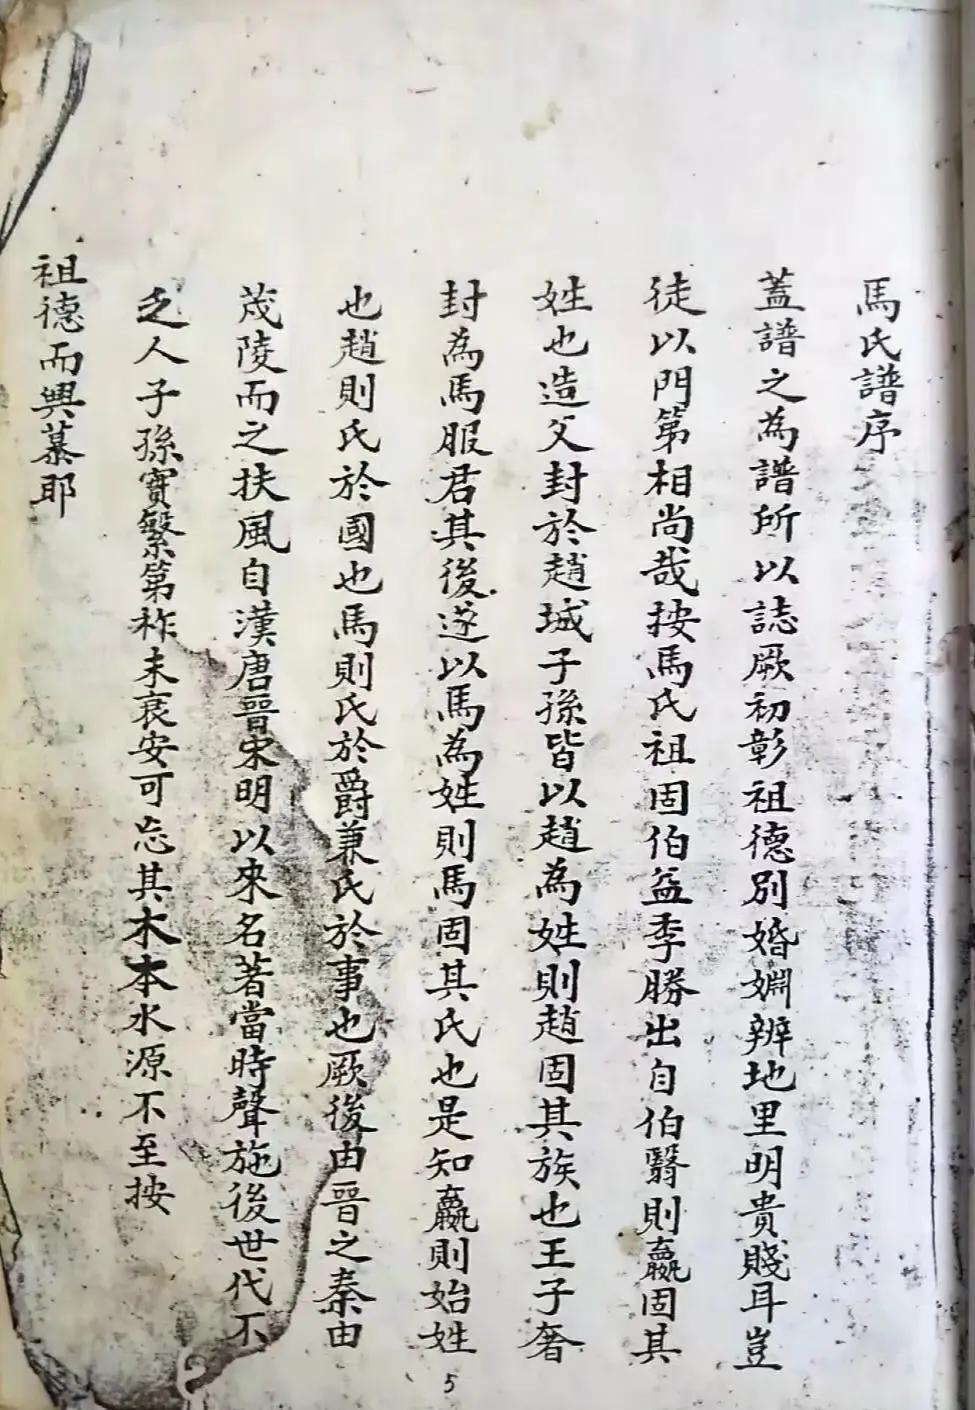 馬氏譜序
蓋譜之為譜所以誌厥初彰祖德別婚姻辨地里明貴賤耳豈
徒以門第相尚哉按馬氏祖固伯益季勝出自伯翳則嬴固其
姓也造父封於趙城子孫皆以趙為姓則趙固其族也王子奢
封為馬服君其後遂以馬為姓則馬固其氏也是知嬴則始姓
也趙則氏於國也馬則氏於爵兼氏於事也厥後由晉之秦由
茂陵而之扶風自漢唐晉宋明以來名著當時聲施後世代不
乏人子孫實繁第祚未衰安可忘其木本水源不至按
祖德而興慕耶
5